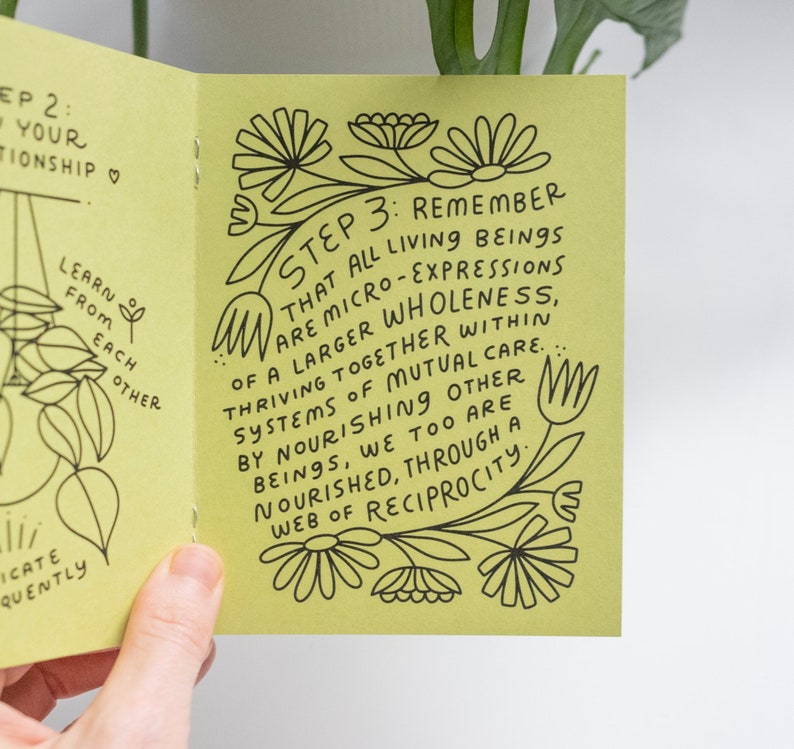 EP 2:
YOUR
TIONSHIP ♡
LEARN
FROM
EACH
OTHER
ICATE
QUENTLY
STEP 3: REMEMBER
THAT ALL LIVING BEINGS
ARE MICRO-EXPRESSIONS
OF A LARGER WHOLENESS,
THRIVING TOGETHER WITHIN
SYSTEMS OF MUTUAL CARE.
BY NOURISHING OTHER
BEINGS, WE TOO ARE
NOURISHED, THROUGH A
WEB OF RECIPROCITY.